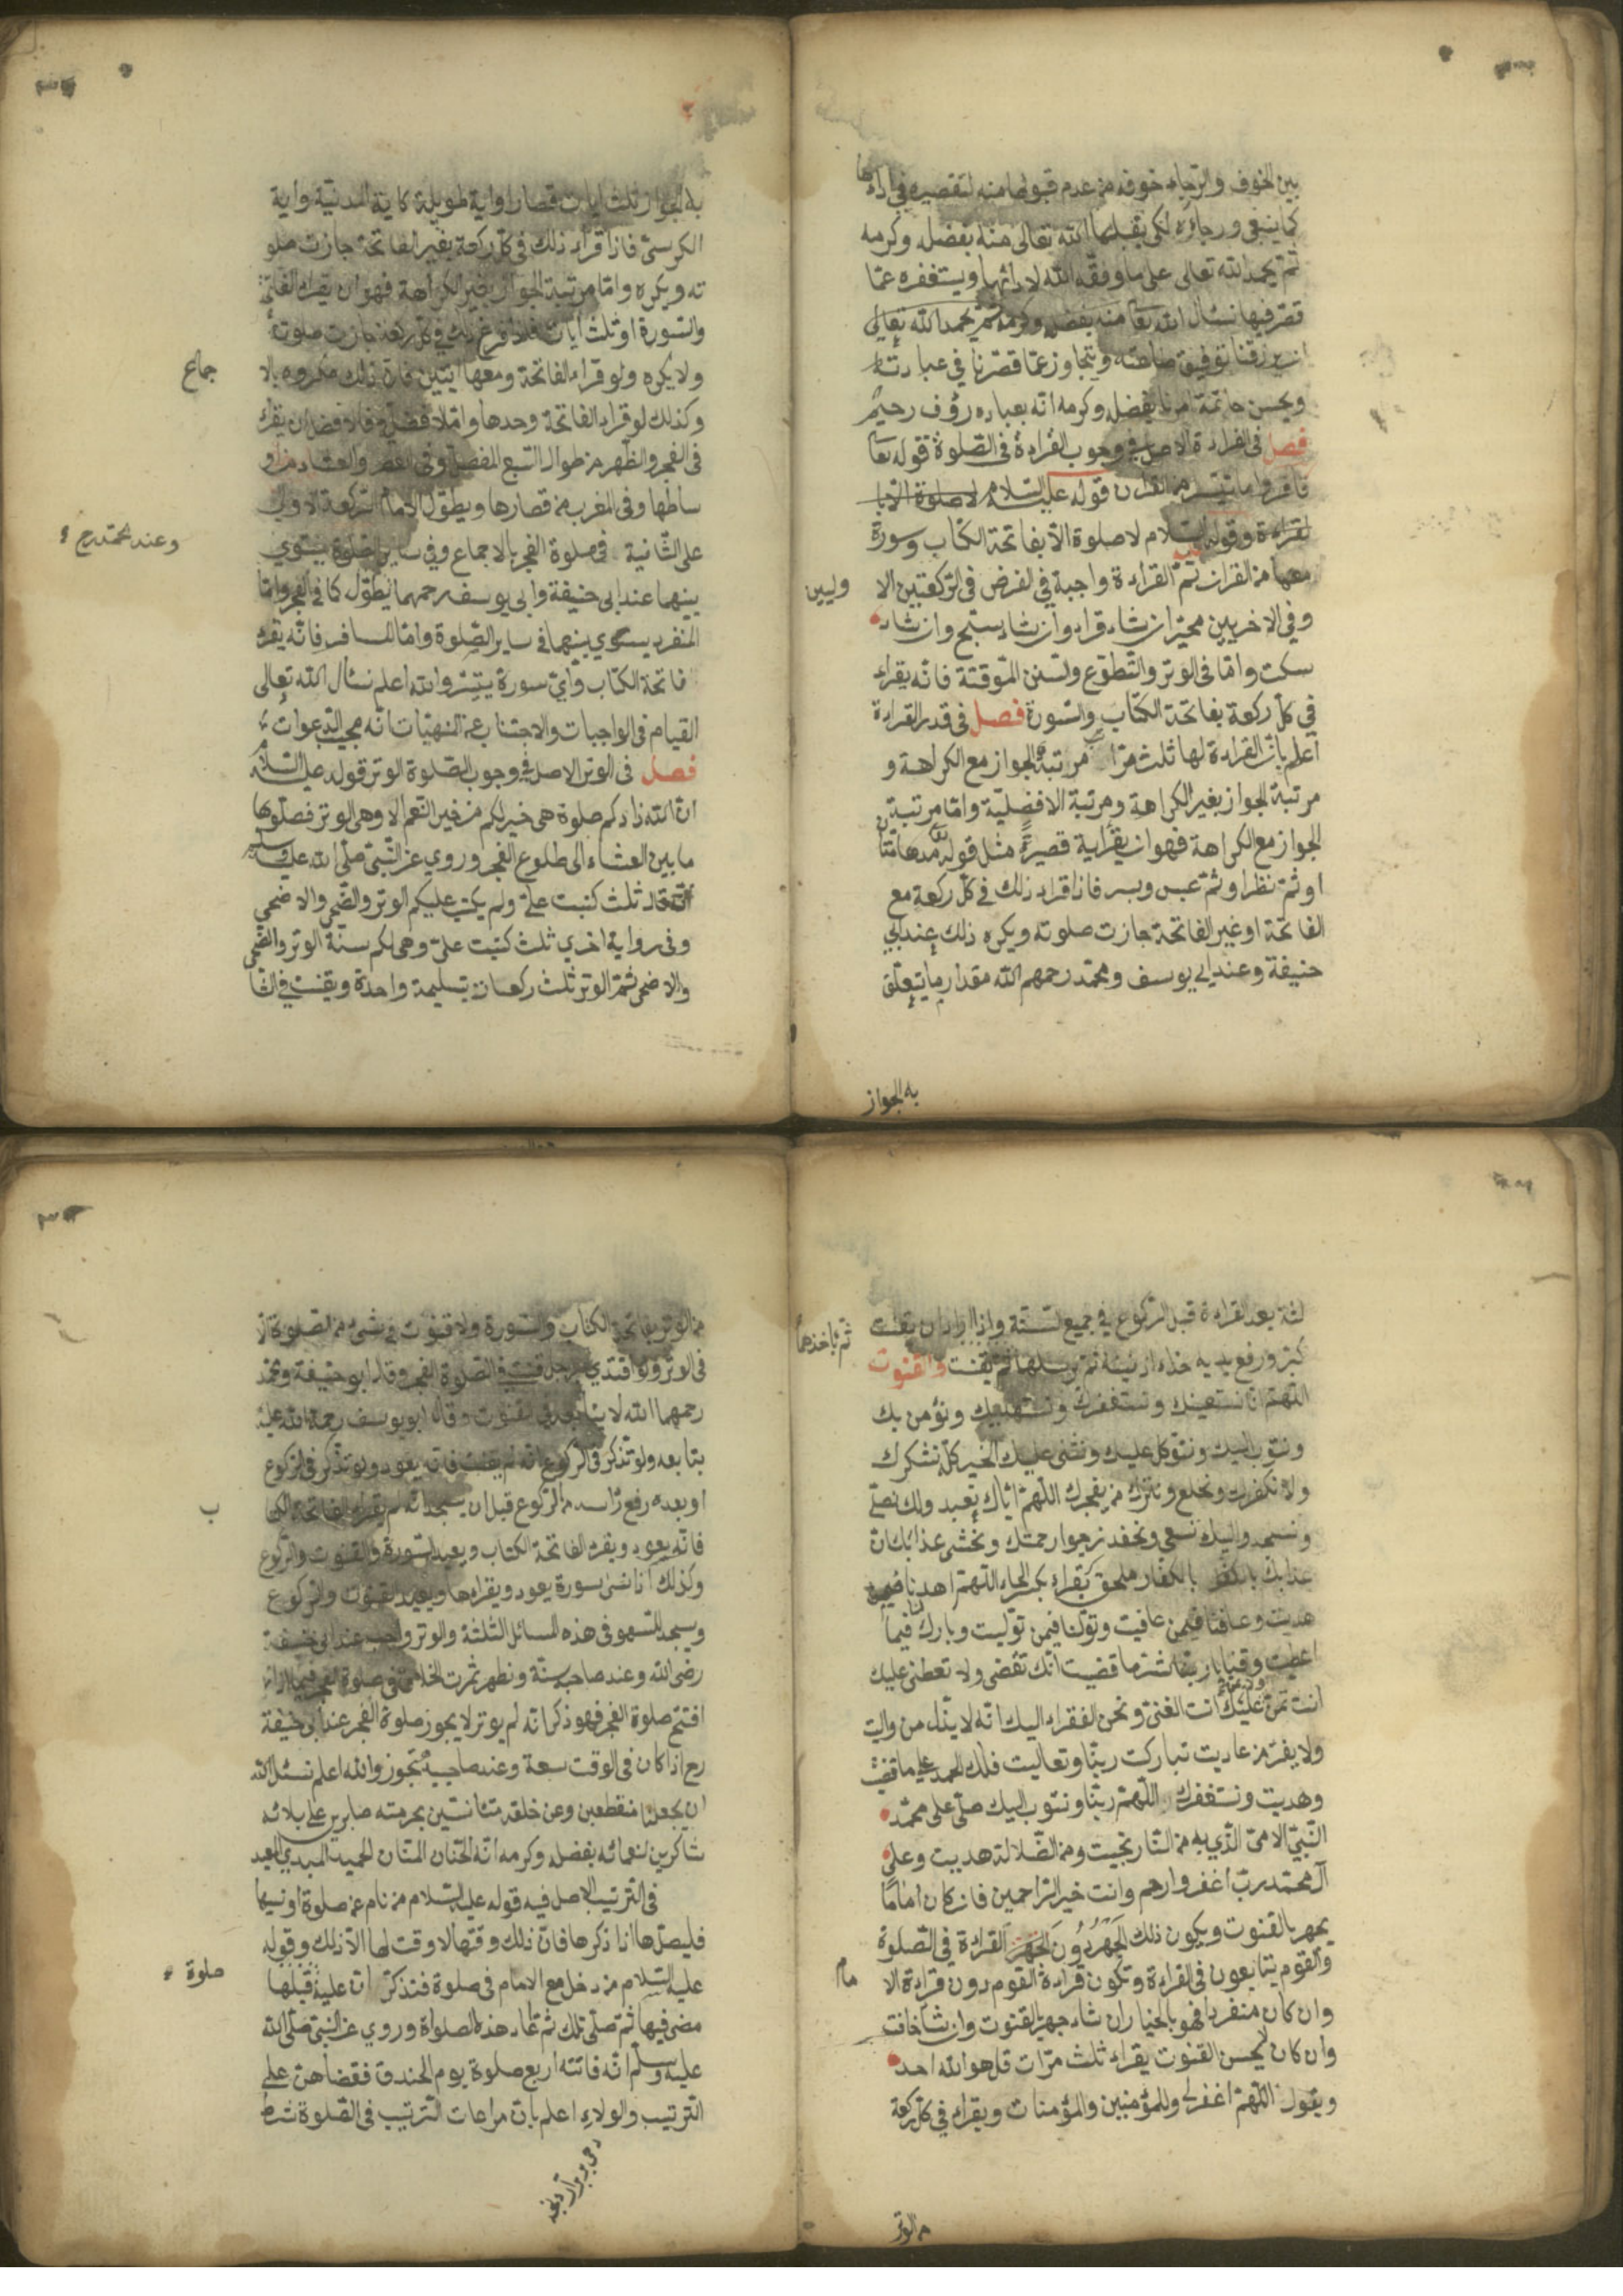 بين الخوف والرجاء خوفه من عدم قبولها منه لتقصيره في اداءها
كما ينبغي ورجاؤه لكي يقبلها الله تعالى منه بفضله وكرمه
ثم يحمد الله تعالى على ما وفقه الله لادائها ويستغفره عما
قصر فيها نسئال الله تعا منه بفضله وكرمه ثم يحمد الله تعالى
ان يرزقنا توفيق طاعته ويتجاوز عما قصرنا في عبادته
ويحسن خاتمة امرنا بفضله وكرمه انه بعباده رؤف رحيم
فصل فى القراءة الاصل في وجوب القراءة فى الصلوة قوله تعا
فاقروا ما تيسر من القران قوله عليه السلام لا صلوة الا با
لقراءة وقوله عليه السلام لا صلوة الا بفاتحة الكتاب وسورة
معها من القران ثم القراءة واجبة في لفرض فى الركعتين الا
وليين
وفي الاخريين مخير ان شاء قراء وان شاء سبح وان شاء
سكت واما فى الوتر والتطوع ولسنن الموقتة فانه يقراء
في كل ركعة بفاتحة الكتاب والسورة فصل فى قدر القراءة
اعلم بان القراءة لها ثلث مراتب مرتبة الجواز مع الكراهة و
مرتبة الجواز بغير الكراهة ومرتبة الافضلية واما مرتبة
الجواز مع الكراهة فهو ان يقرا اية قصيرة مثل قوله تعا مدهامتان
او ثم نظر او ثم عبس وبسر فاذا قراء ذلك في كل ركعة مع
الفاتحة او غير الفاتحة جازت صلوته ويكره ذلك عند ابي
حنيفة وعند ابي يوسف ومحمد رحمهم الله مقدار ما يتعلق
به الجواز
به الجواز ثلث ايات قصار او اية طويلة كاية المدنية واية
الكرسى فاذا قراء ذلك في كل ركعة بغير الفاتحة جازت صلو
ته ويكره واما مرتبة الجواز بغير الكراهة فهو ان يقراء الفاتحة
والسورة او ثلث ايات فاذا فرغ ذلك في كل ركعة جازت صلوته
ولا يكره ولو قراء الفاتحة ومعها ايتين فان ذلك مكروه بالا
جماع
وكذلك لو قراء الفاتحة وحدها واما الافضل فالافضل ان يقراء
فى الفجر والظهر من طوال السبع المفصل وفى العصر والعشاء من او
ساطها وفى المغرب من قصارها ويطول الامام الركعة الاولى
على الثانية فى صلوة الفجر بالاجماع وفي ساير الصلوة يستوي
وعند محمد رح
بينهما عند ابى حنيفة وابى يوسف رحمهما يطول كما فى الفجر واما
المنفرد يستوي بينهما فى ساير الصلوة واما المسافر فانه يقراء
فاتحة الكتاب واي سورة يتيسر والله اعلم نسئال الله تعالى
القيام فى الواجبات والاجتناب عن المنهيات انه مجيب الدعوات
فصل فى الوتر الاصل في وجوب الصلوة الوتر قوله عليه السلام
ان الله زادكم صلوة هي خير لكم من خير النعم الا وهى الوتر فصلوها
ما بين العشاء الى طلوع الفجر وروي عن النبي صلى الله عليه وسلم
انه قال ثلث كتبت على ولم يكتب عليكم الوتر والضحى والاضحى
وفى رواية اخري ثلث كتبت على وهى لكم سنة الوتر والضحى
والاضحى ثم الوتر ثلث ركعات بتسليمة واحدة ويقنت في الثا
لثة بعد القراءة قبل الركوع في جميع لسنة واذا اراد ان يقنت
كبر ورفع يديه حذاء اذنيه ثم يرسلهما ثم يقنت والقنوت
ثم ياخذهما
اللهم انا نستعينك ونستغفرك ونستهديك ونؤمن بك
ونتوب اليك ونتوكل عليك ونثنى عليك الخير كله نشكرك
ولا نكفرك ونخلع ونترك من يفجرك اللهم اياك نعبد ولك نصلي
ونسجد واليك نسعى ونحفد نرجوا رحمتك ونخشى عذابك ان
عذابك بالكفار ملحق يقراء بكسر الحاء اللهم اهدنا فيمن
هديت وعافنا فيمن عافيت وتولنا فيمن توليت وبارك لنا فيما
اعطيت وقنا يا ربنا شر ما قضيت انك تقضى ولا تعطى عليك
انت تمن ولا يمن عليك انت الغنى ونحن الفقراء اليك انه لا يذل من واليت
ولا يعز من عاديت تباركت ربنا وتعاليت فلك الحمد على ما قضيت
وهديت ونستغفرك اللهم ربنا ونتوب اليك صلى على محمد
النبي الامى الذي به من النار نجيت ومن الضلالة هديت وعلى
آل محمد رب اغفر وارحم وانت خير الراحمين فان كان اماما
يجهر بالقنوت ويكون ذلك الجهر دون الجهر القراءة في الصلوة
والقوم يتابعون فى القراءة وتكون قراءة القوم دون قراءة الا
مام
وان كان منفردا فهو بالخيار ان شاء جهر القنوت وان شا خافت
وان كان لا يحسن القنوت يقراء ثلث مرات قل هو الله احد
ويقول اللهم اغفر لي وللمؤمنين والمؤمنات ويقراء في كل ركعة
من الوتر
من الوتر بفاتحة الكتاب والسورة ولا قنوت في شئ من الصلوة الا
فى الوتر ولو اقتدي برجل قنت في الصلوة الفجر وقال ابو حنيفة ومحمد
رحمهما الله لا يتابعه في القنوت وقال ابو يوسف رحمة الله عليه
يتابعه ولو تذكر فى الركوع انه لم يقنت فانه يعود ولو تذكر في الركوع
او بعده رفع راسه من الركوع قبل ان يسجد انه لم يقراء الفاتحة الكتا
ب
فانه يعود ويقراء الفاتحة الكتاب ويعيد السورة والقنوت والركوع
وكذلك اذا نسى سورة يعود ويقراءها ويعيد القنوت والركوع
ويسجد للسهو فى هذه المسائل الثلثة والوتر واجب عند ابى حنيفة
رضى الله وعند صاحبيه سنة ونظهر ثمرت الخلاف فى صلوة الفجر فيما اذا
افتتح صلوة الفجر فهو ذكر انه لم يوتر لا يجوز صلوة الفجر عند ابى حنيفة
رح اذا كان فى الوقت سعة وعند صاحبيه تجوز والله اعلم نسئل الله
ان يجعلنا منقطعين وعن خلقه مستانسين بحرمته صابرين على بلائه
شاكرين لنعمائه بفضله وكرمه انه الحنان المنان الحميد المبدي المعيد
فى الترتيب الاصل فيه قوله عليه السلام من نام عن صلوة او نسيها
فليصلها اذا ذكرها فان ذلك وقتها لا وقت لها الا ذلك وقوله
عليه السلام من دخل مع الامام فى صلوة فتذكر ان عليه قبلها
صلوة
مضى فيها ثم صلى تلك ثم اعاد هذه الصلواة وروي عن النبي صلى الله
عليه وسلم انه فاتته اربع صلوة يوم الخندق فقضاهن على
الترتيب والولاء اعلم بان مراعات الترتيب فى الصلوة شرط